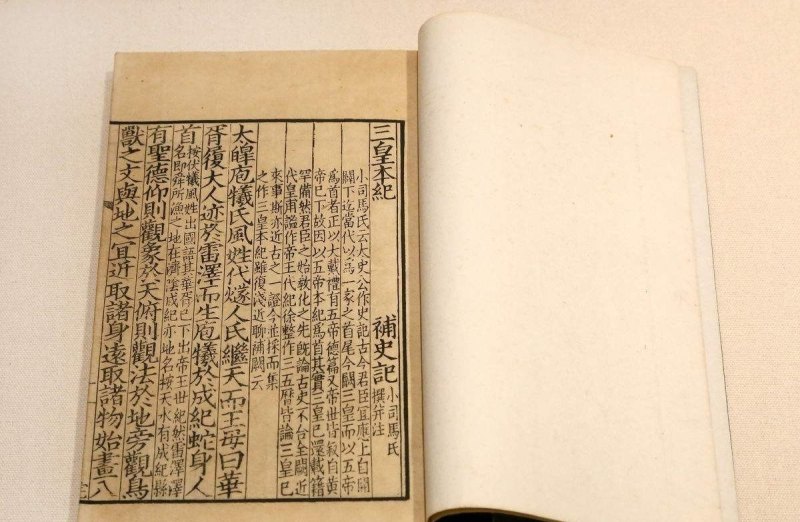 三皇本紀 補史記 小司馬氏
撰并注
小司馬氏云太史公作史記古今君臣宜應上自開
闢下迄當代以爲一家之首尾今闕三皇而以五帝
爲首者正以大戴禮有五帝德篇又帝世皆叙自黄
帝已下故因以五帝本紀爲首其實三皇已還載籍
罕備然君臣之始教化之先旣論古史不合全闕近
代皇甫謐作帝王代紀徐整作三五曆皆論三皇已
來事斯亦近古之一證今並採而集
之作三皇本紀雖復淺近聊補闕云
太皥庖犧氏風姓代燧人氏繼天而王母曰華
胥履大人迹於雷澤而生庖犧於成紀蛇身人
首 按伏犧風姓出國語其華胥已下出帝王世紀然雷澤澤
名即舜所漁之地在濟陰成紀亦地名按天水有成紀縣
有聖德仰則觀象於天俯則觀法於地旁觀鳥
獸之文與地之宜近取諸身遠取諸物始畫八